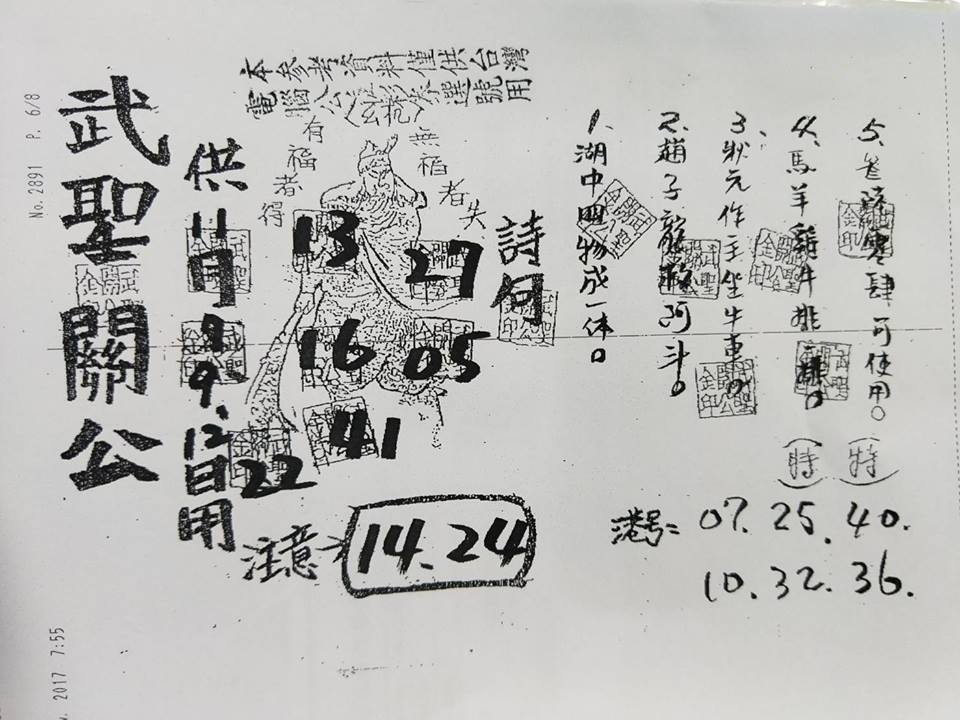 No.2891 P. 6/8
2017 7:55
武聖關公
供11月7、9、12日用
本參考資料僅供台灣
電腦公益彩券選號用
有福者得
無福者失
13
27
16
05
41
22
注意
14.24
詩句
1、湖中四物成一体。
2、趙子龍救阿斗。
3、狀元作主坐牛車。
4、馬羊雞牛排
5、叁陸零肆可使用。
(時)
(特)
港号：07.25.40.
10.32.36.